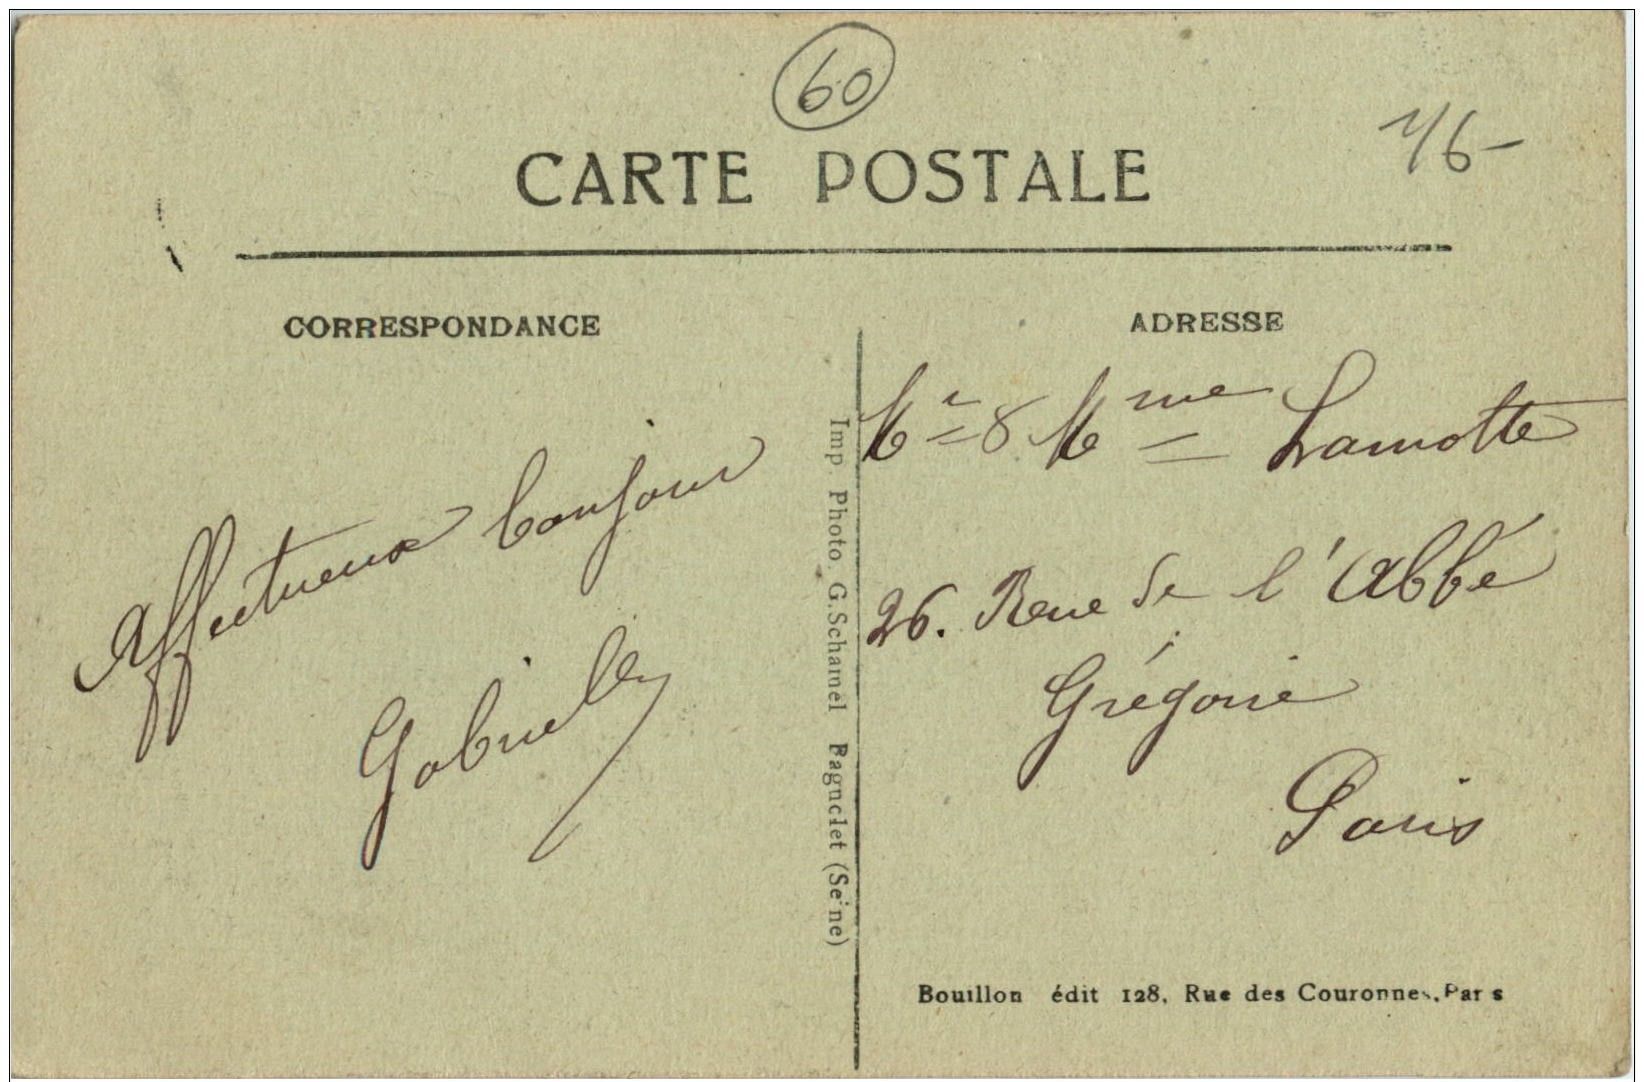 60
CARTE POSTALE
CORRESPONDANCE
Affectueux bonjour
Gabrielle
Imp. Photo. G. Schamel Bagnolet (Seine)
ADRESSE
Mr & Mme Lamotte
26. Rue de l'Abbé
Grégoire
Paris
Bouillon édit 128, Rue des Couronnes, Paris